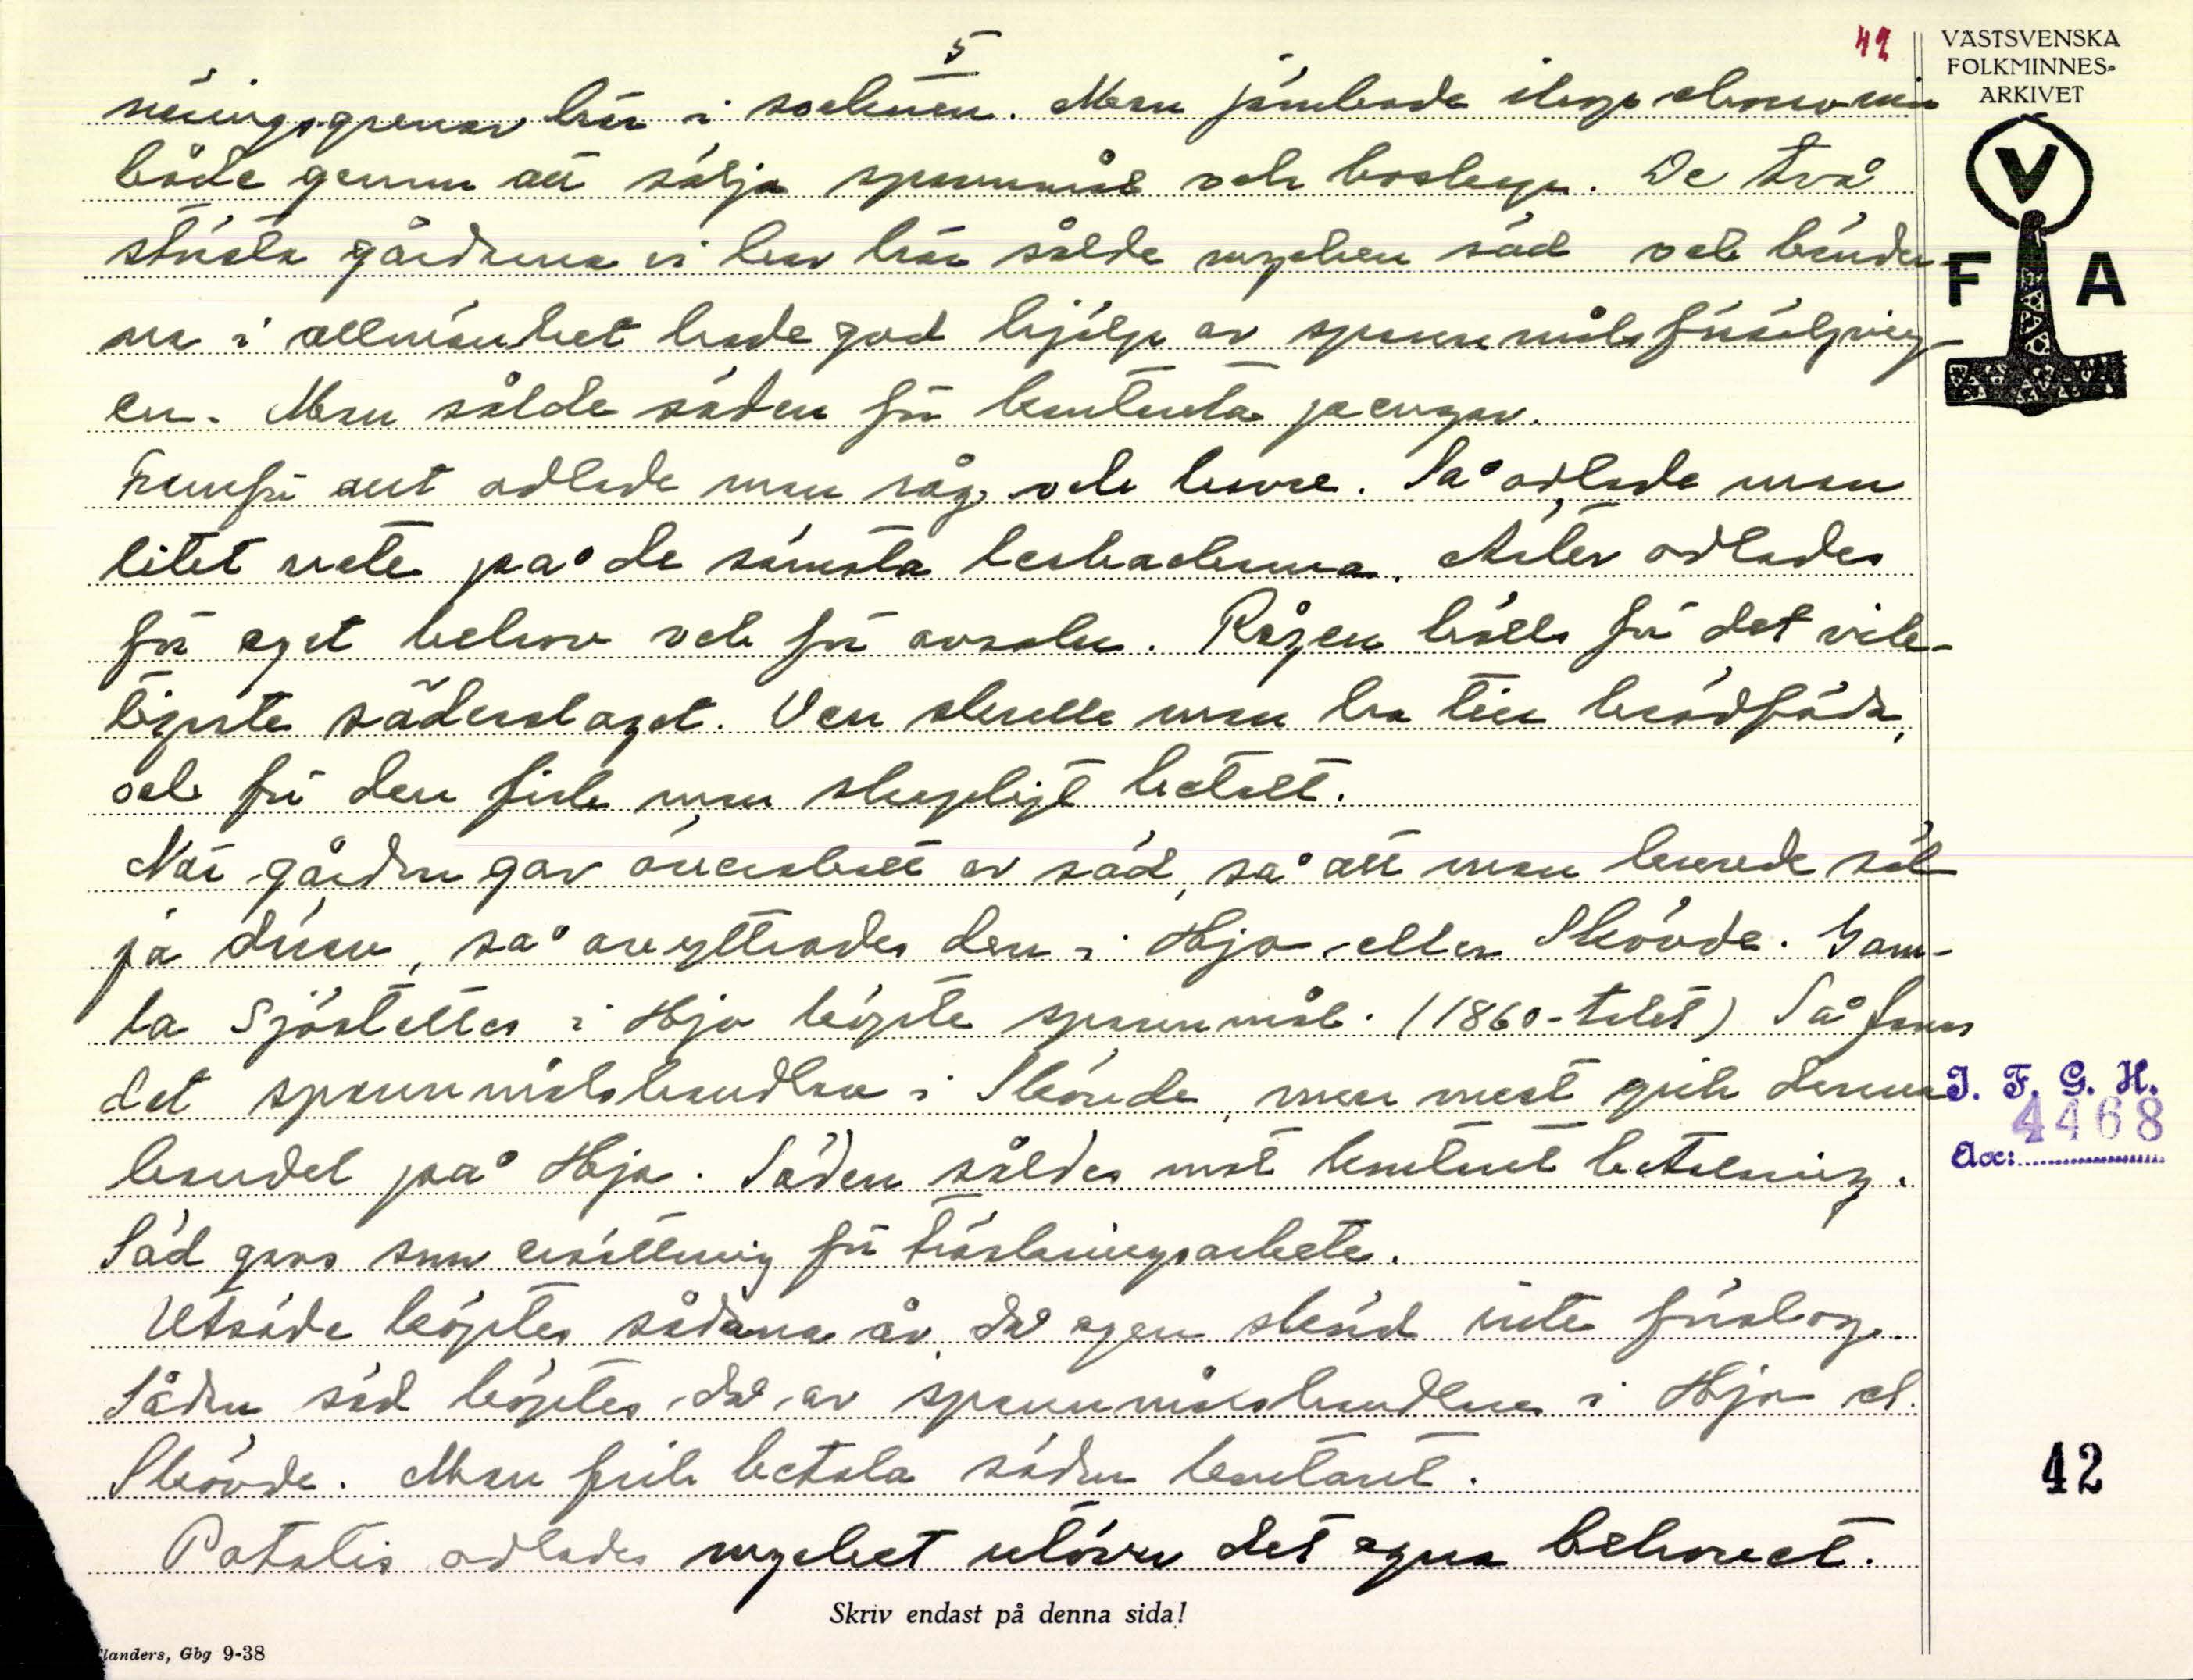 5
42
VÄSTSVENSKA
FOLKMINNES-
ARKIVET
V
F A
näringsgrenar här i socknen. Man jämkade ekonomin
både genom att sälja spannmål och boskap. De två
största gårdarna vi har här sålde mycken säd och bönder-
na i allmänhet hade god hjälp av spannmålsförsäljning
en. Man sålde säden för kontanta pengar.
Framför allt odlade man råg och havre. Så odlade man
litet vete på de sämsta. Ärter odlades
för eget behov och för avsalu. Rågen hölls för det vik-
tigaste sädesslaget. Den skulle man ha till brödföda,
och för den fick man skapligt betalt.
När gården gav överskott av säd, så att man kunde säl
ja den, så avyttrades den i Hjo eller Skövde. Gam-
la Sjöstettes i Hjo köpte spannmål. (1860-talet) Så fanns
det spannmålshandlare i Skövde, men mest gick denna
handel på Hjo. Säden såldes mot kontant betalning.
Säd gavs som ersättning för tröskningsarbete.
Utsäde köptes sådana år, då egen skörd inte förslog.
Sådan säd köptes då av spannmålshandlare i Hjo el.
Skövde. Man fick betala säden kontant.
Potatis odlades mycket utöver det egna behovet.
I. F. G. H.
4468
Acc:
42
Skriv endast på denna sida!
landers, Gbg 9-38